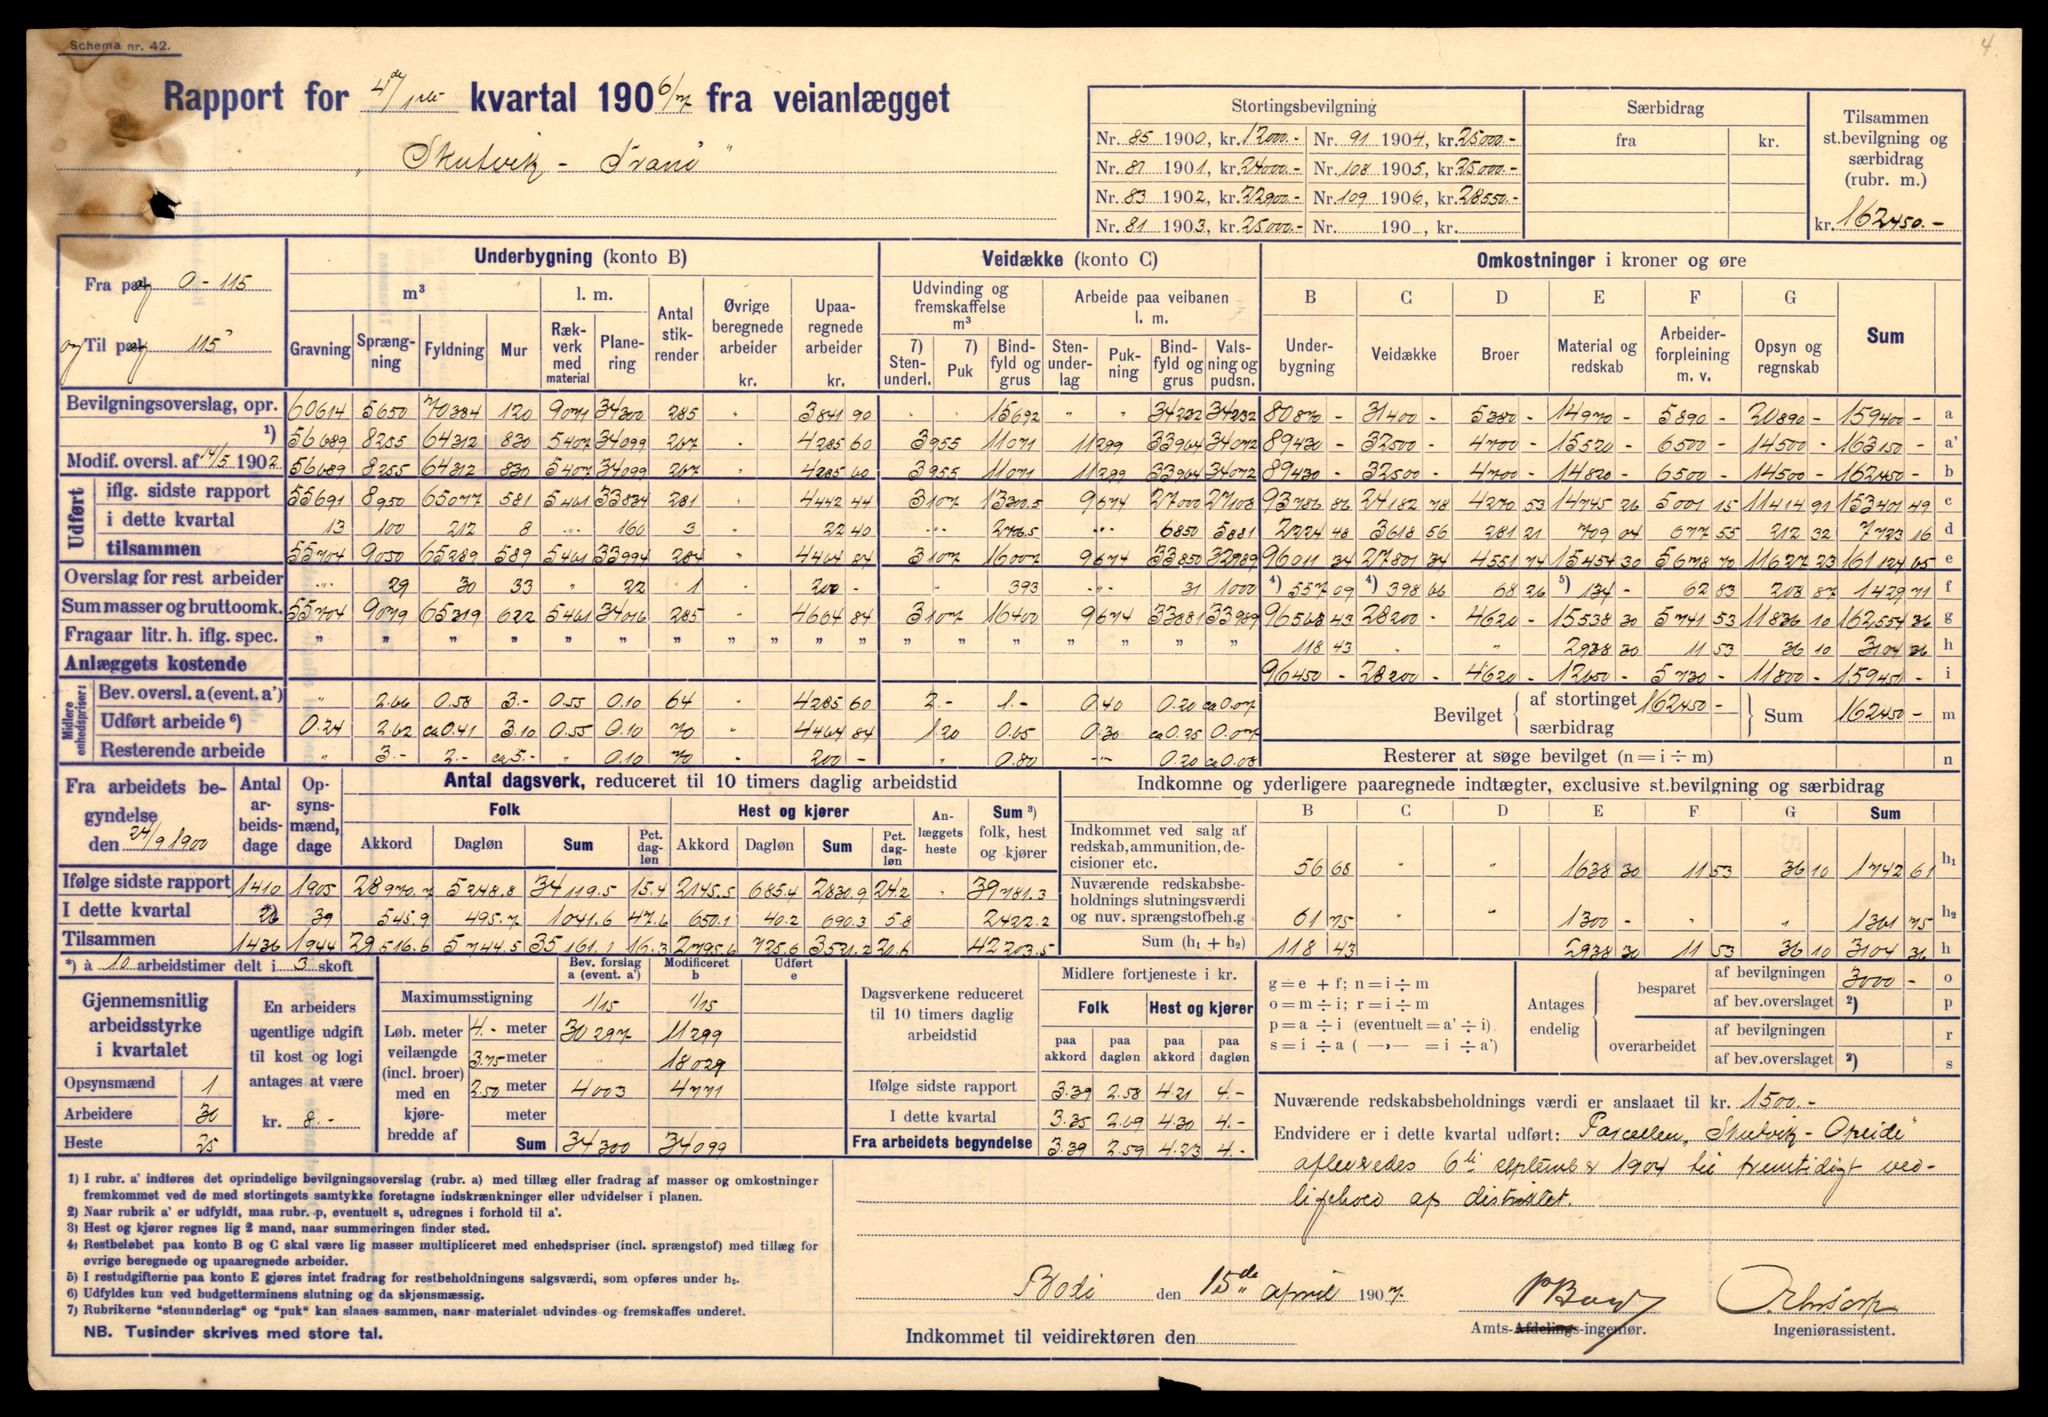 4.
Schema nr. 42.
Rapport for 4de/1ste kvartal 1906/7 fra veianlægget
"Skutvik - Tranö"
Stortingsbevilgning
Nr. 85 1900, kr. 12000.- Nr. 91 1904, kr. 25000.-
Nr. 87 1901, kr. 24000.- Nr. 108 1905, kr. 25000.-
Nr. 83 1902, kr. 22900.- Nr. 109 1906, kr. 28550.-
Nr. 81 1903, kr. 25000.- Nr. 190 , kr.
Særbidrag
fra kr.
Tilsammen
st.bevilgning og
særbidrag
(rubr. m.)
kr. 162450.-
Fra pæl 0 - 115
og Til pæl 115
Underbygning (konto B)
m³ l. m. Antal stikrender Øvrige beregnede arbeider kr. Upaaregnede arbeider kr.
Gravning Sprængning Fyldning Mur Rækverk med material Planering
Veidække (konto C)
Udvinding og fremskaffelse m³ Arbeide paa veibanen l. m.
7) Stenunderl. 7) Puk Bindfyld og grus Stenunderlag Pukning Bindfyld og grus Valsning og pudsn.
Omkostninger i kroner og øre
B C D E F G
Underbygning Veidække Broer Material og redskab Arbeiderforpleining m. v. Opsyn og regnskab Sum
Bevilgningsoverslag, opr. 60614 5650 70384 120 9071 34300 285 " 3841 90 " " 15692 " " 34232 34232 80870 - 31400 - 5380 - 14970 - 5890 - 20890 - 159400 - a
1) 56689 8255 64312 830 5407 34099 267 " 4285 60 3955 11071 11299 33964 34072 89430 - 32500 - 4700 - 15520 - 6500 - 14500 - 163150 - a'
Modif. oversl. af 14/5 1902 56689 8255 64312 830 5407 34099 267 " 4285 60 3955 11071 11299 33964 34072 89430 - 32500 - 4700 - 14820 - 6500 - 14500 - 162450 - b
Udført
iflg. sidste rapport 55691 8950 65077 581 5461 33834 281 " 4442 44 3107 13300.5 9674 27000 27108 93786 86 24182 78 4270 53 14745 26 5001 15 11414 91 153401 49 c
i dette kvartal 13 100 212 8 " 160 3 22 40 " 2706.5 " 6850 5881 2224 48 3618 56 281 21 709 04 677 55 212 32 7723 16 d
tilsammen 55704 9050 65289 589 5461 33994 284 " 4464 84 3107 16007 9674 33850 32989 96011 34 27801 34 4551 74 15454 30 5678 70 11627 23 161124 65 e
Overslag for rest arbeider " 29 30 33 " 22 1 200 - " 393 " 31 1000 4) 557 09 4) 398 66 68 26 5) 134 - 62 83 208 87 1429 71 f
Sum masser og bruttoomk. 55704 9079 65319 622 5461 34016 285 " 4664 84 3107 16400 9674 33881 33989 96568 43 28200 - 4620 - 15538 30 5741 53 11836 10 162554 36 g
Fragaar litr. h. iflg. spec. " " " " " " " " " " " " " " " " " 118 43 " " 2938 30 11 53 36 10 3104 36 h
Anlæggets kostende 96450 - 28200 - 4620 - 12650 - 5730 - 11800 - 159450 - i
Midlere enhedspriser:
Bev. oversl. a (event. a') " 2.66 0.58 3.- 0.55 0.10 64 " 4285 60 2.- 1.- 0.40 0.20 ca 0.07
Udført arbeide 6) 0.24 2.62 ca 0.41 3.10 0.55 0.10 70 " 4464 84 1.20 0.65 0.30 ca 0.25 0.07
Resterende arbeide " 3.- 2.- ca 5.- " 0.10 70 200 - " 0.80 " 0.20 ca 0.08
Bevilget af stortinget 162450 - særbidrag Sum 162450 - m
Resterer at søge bevilget (n = i ÷ m) n
Fra arbeidets begyndelse den 24/9 1900
Antal arbeidsdage Opsynsmænd, dage
Antal dagsverk, reduceret til 10 timers daglig arbeidstid
Folk Hest og kjører Anlæggets heste Sum 3) folk, hest og kjører
Akkord Dagløn Sum Pct. dagløn Akkord Dagløn Sum Pct. dagløn
Ifølge sidste rapport 1410 1905 28970.7 5248.8 34119.5 15.4 2145.5 685.4 2830.9 24.2 " 39781.3
I dette kvartal 26 39 545.9 495.7 1041.6 47.6 650.1 40.2 690.3 5.8 2422.2
Tilsammen 1436 1944 29516.6 5744.5 35161.1 16.3 2795.6 725.6 3521.2 20.6 42203.5
Indkomne og yderligere paaregnede indtægter, exclusive st.bevilgning og særbidrag
B C D E F G Sum
Indkommet ved salg af redskab, ammunition, decisioner etc. 56 68 " " 1638 30 11 53 36 10 1742 61 h₁
Nuværende redskabsbeholdnings slutningsværdi og nuv. sprængstofbeh.g 61 75 " " 1300 - " " 1361 75 h₂
Sum (h₁ + h₂) 118 43 2938 30 11 53 36 10 3104 36 h
*) à 10 arbeidstimer delt i 3 skoft
Gjennemsnitlig arbeidsstyrke i kvartalet
Opsynsmænd 1
Arbeidere 30
Heste 25
En arbeiders ugentlige udgift til kost og logi antages at være
kr. 8.-
Bev. forslag a (event. a') Modificeret b Udført e
Maximumsstigning 1/15 1/15
Løb. meter veilængde (incl. broer) med en kjørebredde af
4.- meter 30297 11299
3.75 meter " 18029
2.50 meter 4003 4771
meter
Sum 34300 34099
Dagsverkene reduceret til 10 timers daglig arbeidstid
Midlere fortjeneste i kr.
Folk Hest og kjører
paa akkord paa dagløn paa akkord paa dagløn
Ifølge sidste rapport 3.39 2.58 4.21 4.-
I dette kvartal 3.35 2.69 4.30 4.-
Fra arbeidets begyndelse 3.39 2.59 4.23 4.-
g = e + f; n = i ÷ m
o = m ÷ i; r = i ÷ m
p = a ÷ i (eventuelt = a' ÷ i).
s = i ÷ a ( —„— = i ÷ a')
Antages endelig
besparet af bevilgningen 3000 - o
af bev.overslaget 2) p
overarbeidet af bevilgningen r
af bev.overslaget 2) s
Nuværende redskabsbeholdnings værdi er anslaaet til kr. 1500.-
Endvidere er i dette kvartal udført: Parcellen "Skutvik - Opeide"
afleveredes 6te september 1904 til fremtidigt ved-
ligehold af distriktet.
1) I rubr. a' indføres det oprindelige bevilgningsoverslag (rubr. a) med tillæg eller fradrag af masser og omkostninger
fremkommet ved de med stortingets samtykke foretagne indskrænkninger eller udvidelser i planen.
2) Naar rubrik a' er udfyldt, maa rubr. p, eventuelt s, udregnes i forhold til a'.
3) Hest og kjører regnes lig 2 mand, naar summeringen finder sted.
4) Restbeløbet paa konto B og C skal være lig masser multipliceret med enhedspriser (incl. sprængstof) med tillæg for
øvrige beregnede og upaaregnede arbeider.
5) I restudgifterne paa konto E gjøres intet fradrag for restbeholdningens salgsværdi, som opføres under h₂.
6) Udfyldes kun ved budgetterminens slutning og da skjønsmæssig.
7) Rubrikerne "stenunderlag" og "puk" kan slaaes sammen, naar materialet udvindes og fremskaffes underet.
NB. Tusinder skrives med store tal.
Bodö den 15de april 1907.
Indkommet til veidirektøren den
Amts-Afdelings-ingeniør.
Ingeniørassistent.